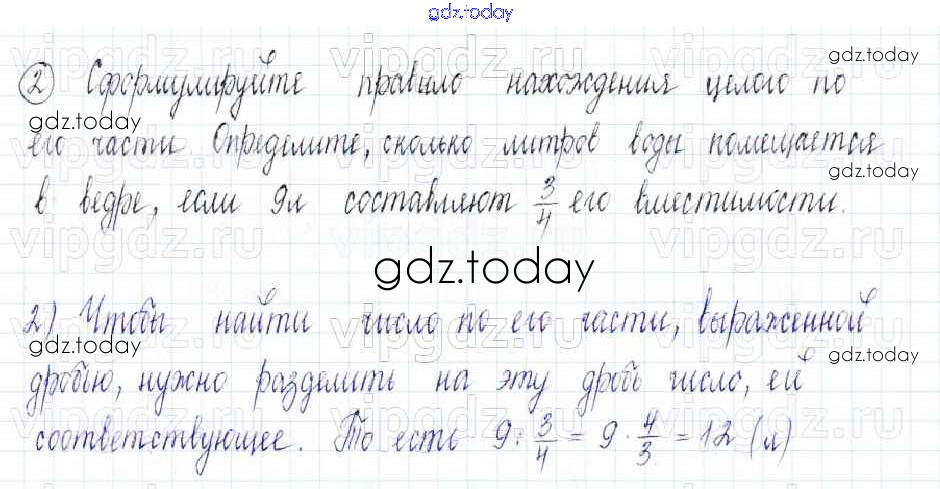 gdz.today
② Сформулируйте правило нахождения целого по
gdz.today
gdz.today
его части. Определите, сколько литров воды помещается
gdz.today
в ведре, если 9л составляют 3/4 его вместимости.
vipgdz.ru
gdz.today
2) Чтобы найти число по его части, выраженной
gdz.today
gdz.today
дробью, нужно разделить на эту дробь число, ей
соответствующее. То есть 9 : 3/4 = 9 · 4/3 = 12 (л)